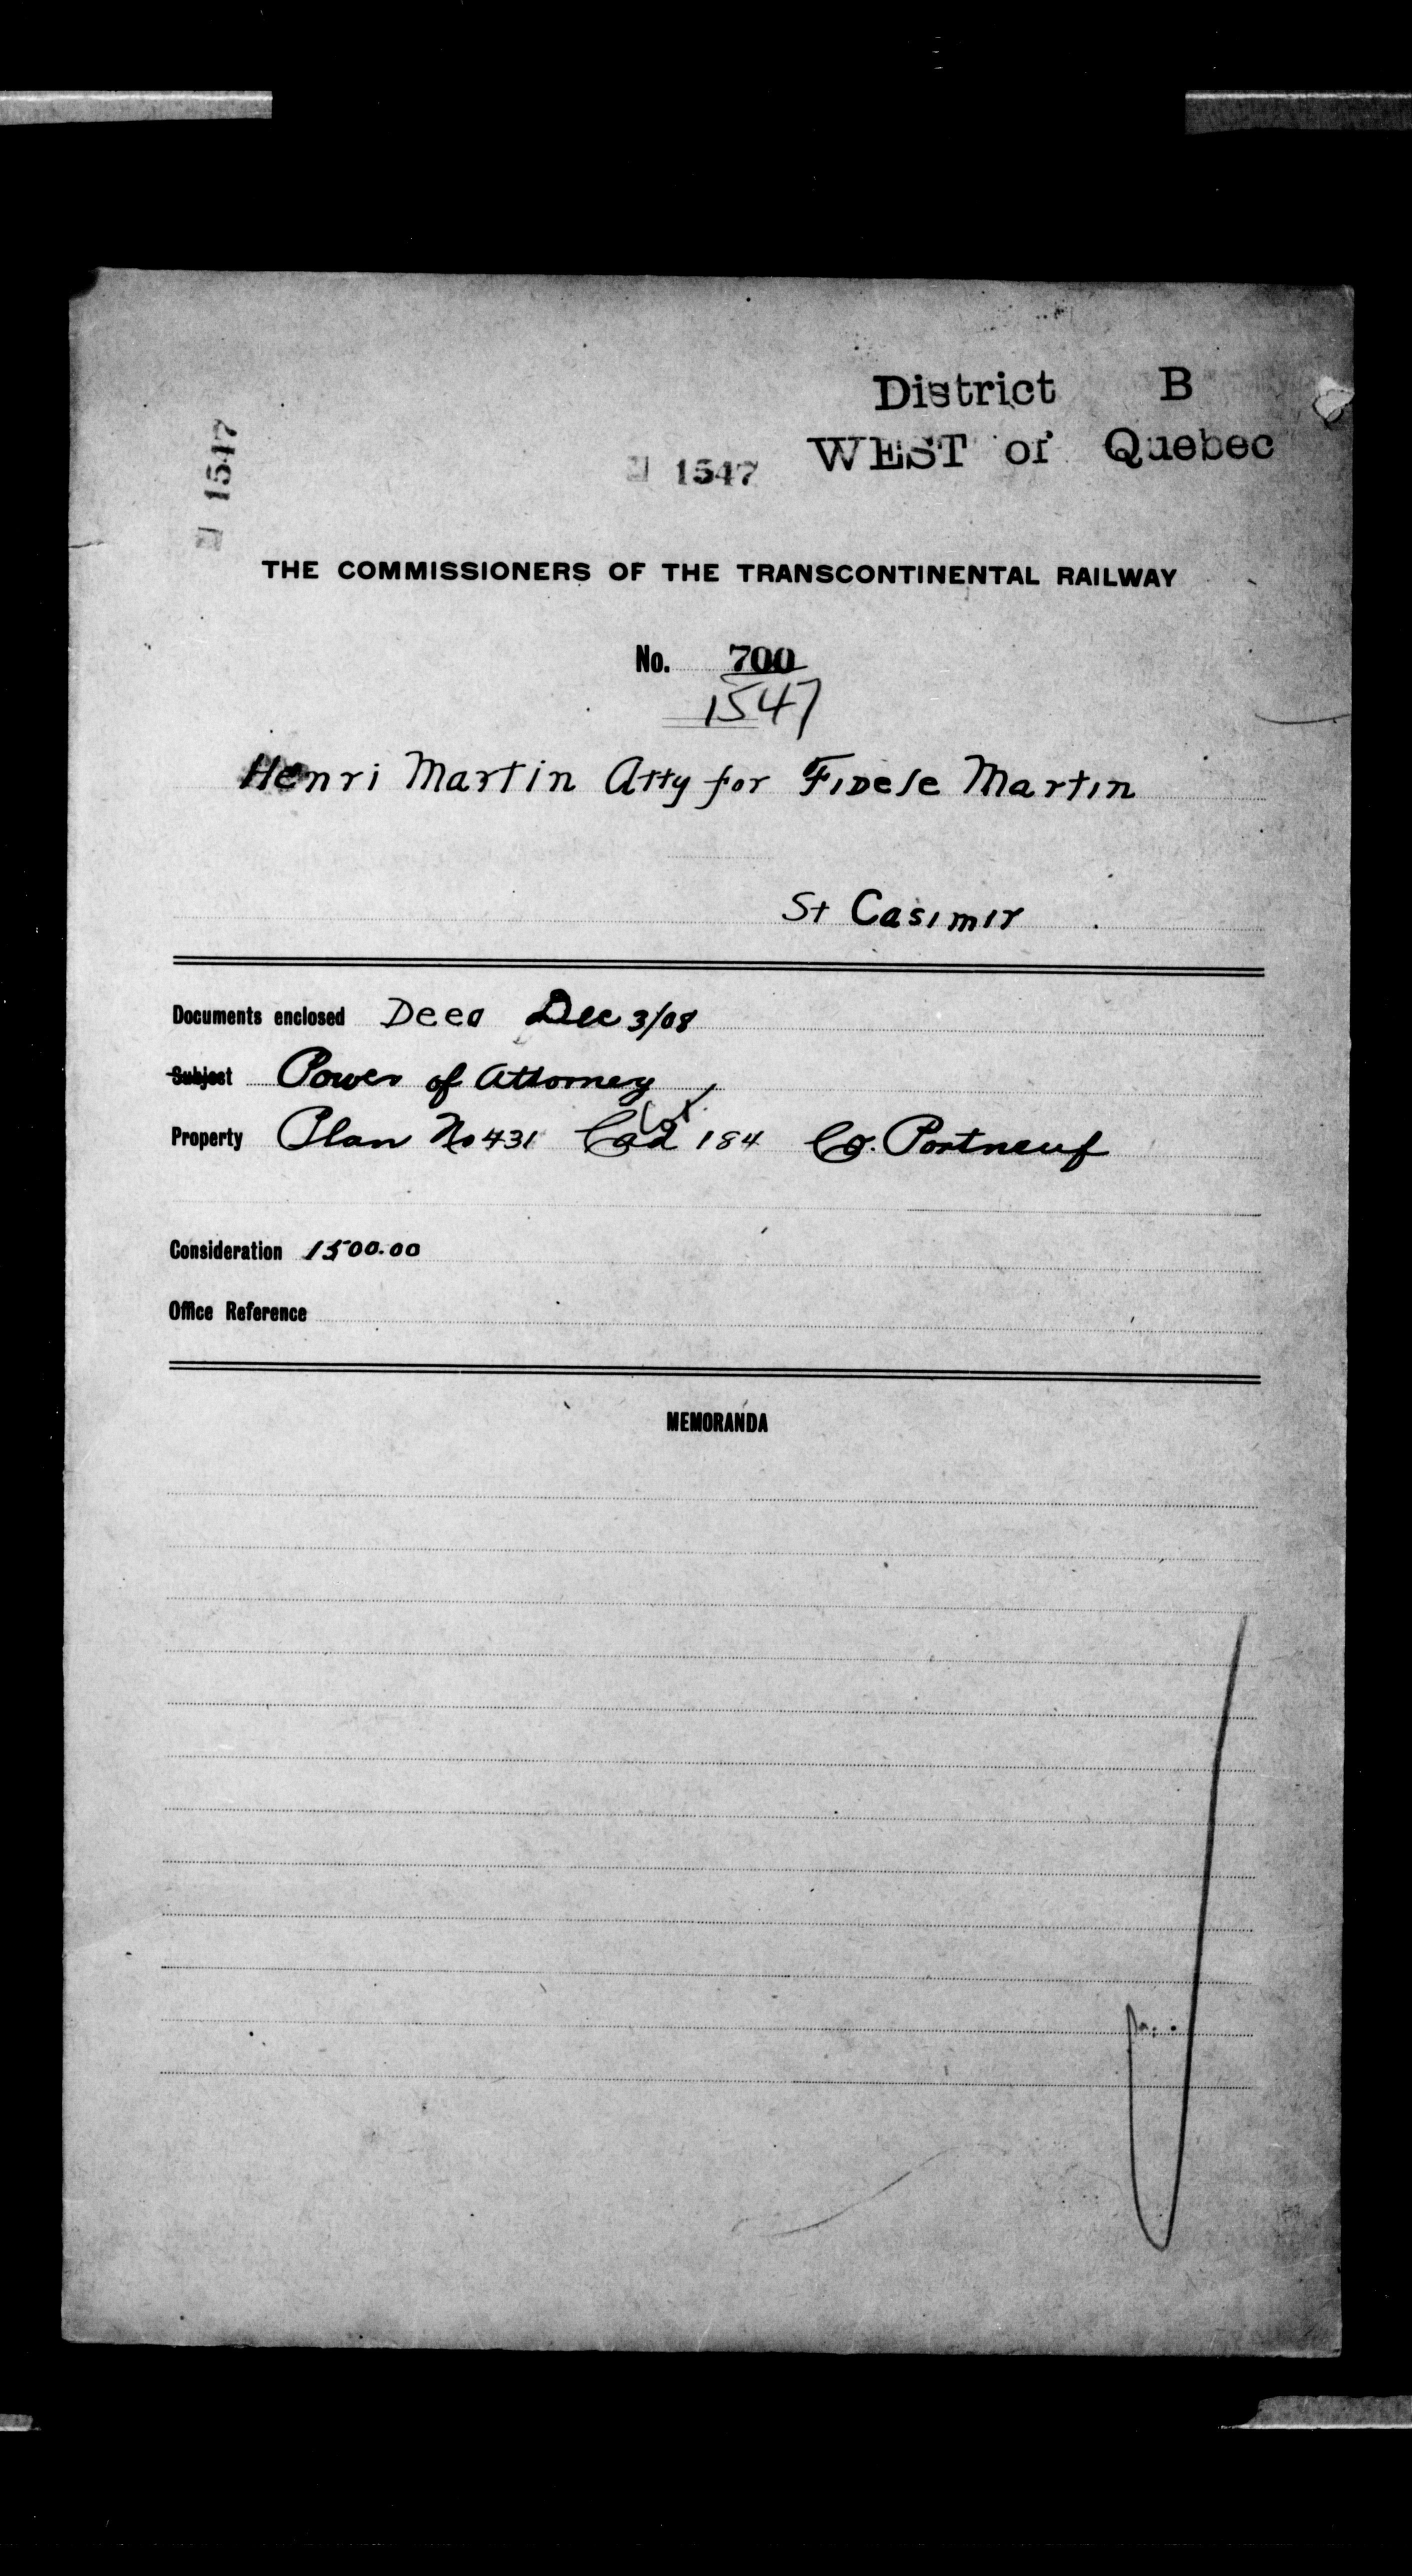 District B
WEST of Quebec
1547
1547
THE COMMISSIONERS OF THE TRANSCONTINENTAL RAILWAY
No. 700
1547
Henri Martin Atty for Fidele Martin
St Casimir
Documents enclosed Deed Dec 3/08
Subject Power of Attorney
Property Plan No 431 Cad 184 Co. Portneuf
Consideration 1500.00
Office Reference
MEMORANDA